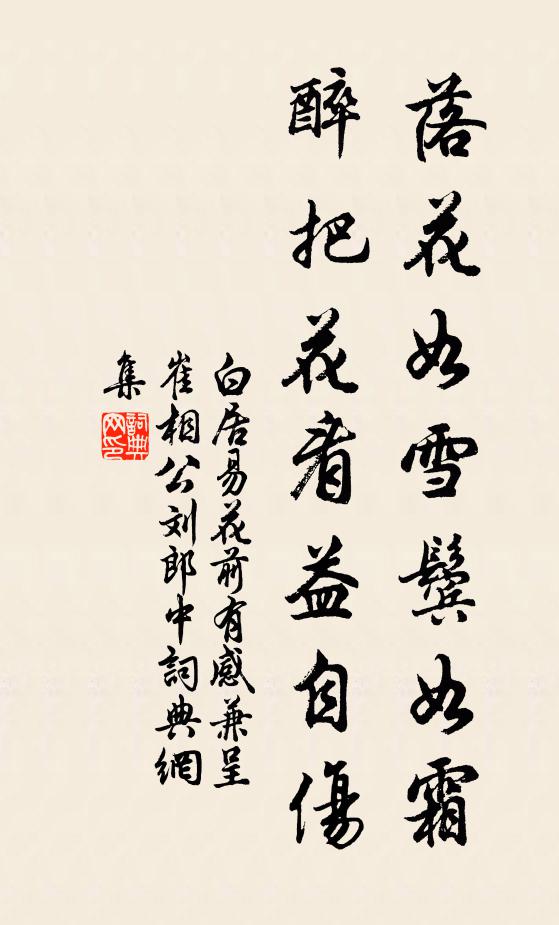 落花如雪鬢如霜
醉把花看益自傷
白居易花前有感兼呈
崔相公刘郎中詞典網
集
詞典网印